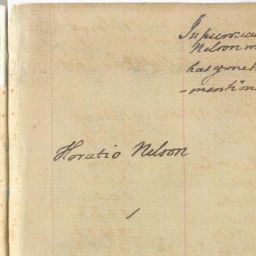 In pursua
Nelson
has gone
-mention
Horatio Nelson
1